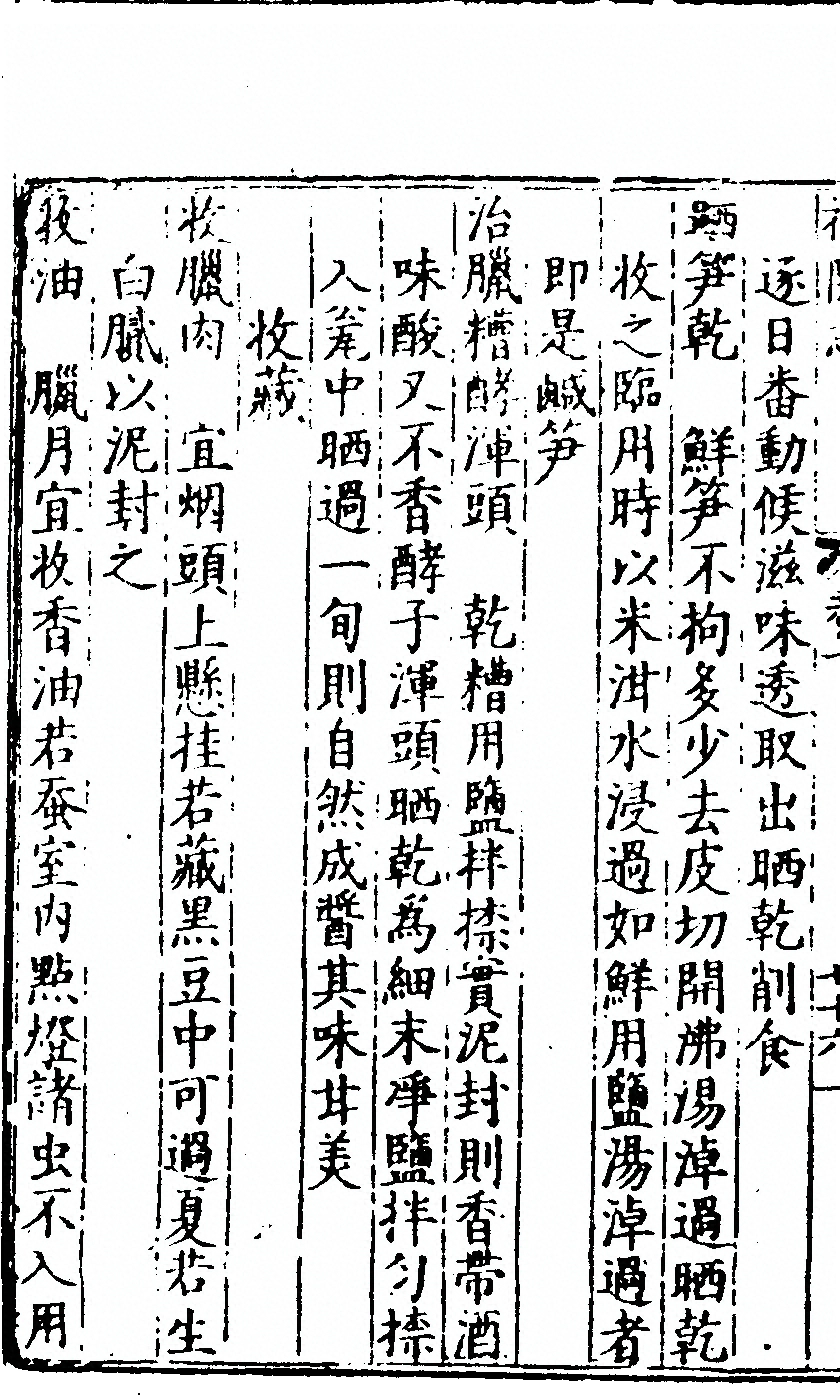 逐日番動候滋味透取出晒乾削食
晒笋乾　鮮笋不拘多少去皮切開沸湯淖過晒乾
收之臨用時以米泔水浸過如鮮用鹽湯淖過者
即是鹹笋
治臘糟酵渾頭　乾糟用鹽拌搽實泥封則香帶酒
味酸又不香酵子渾頭晒乾爲細末淨鹽拌匀搽
入瓮中晒過一旬則自然成醬其味甘美
收藏
收臘肉　宜烟頭上懸挂若藏黑豆中可過夏若生
白膱以泥封之
收油　臘月宜收香油若蚕室内點燈諸虫不入用